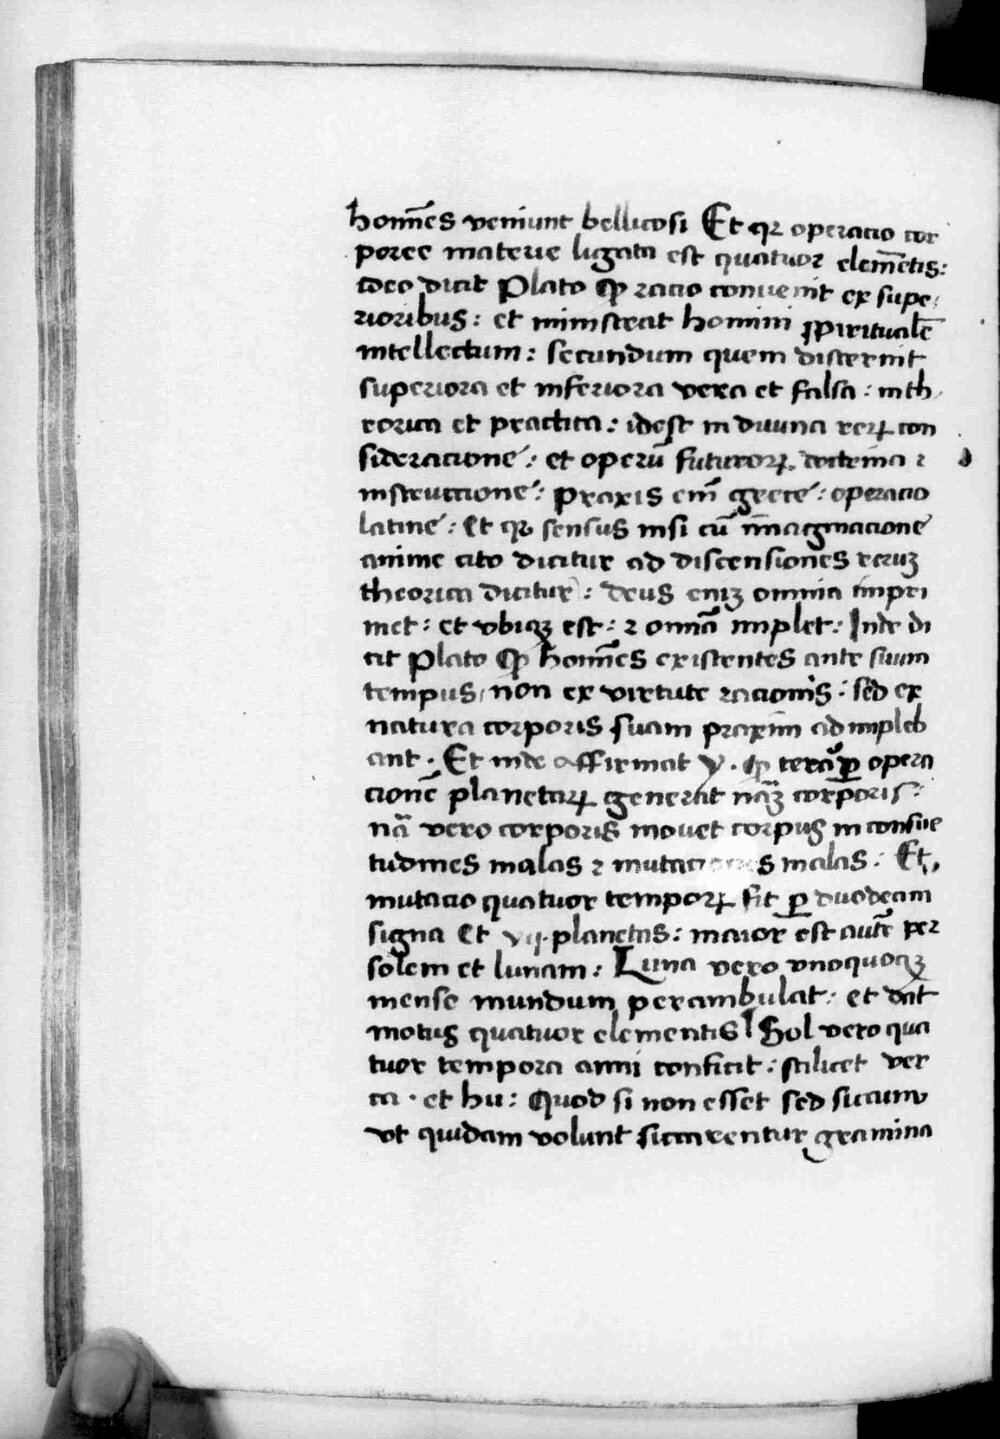 hom̄es veniunt bellicosi Et qꝛ operacio cor
poree materie ligata est quatuor elem̄etis:
ideo dicit Plato ꝙ racio conuenit ex supe
rioribus: et ministrat homini spiritualē
intellectum: secundum quem discernit
superiora et inferiora vera et falsa: in th
eorica et practica: idest in diuina reꝝ con
sideracione: et operū futuroꝝ doctrina ⁊
instruccione: praxis em̄ grece: operacio
latine: Et qꝛ sensus nisi cū īmaginacione
anime cito dicitur ad discensiones reruꝫ
theorica dicitur: deus eniꝫ omnia impri
met: et vbiqꝫ est: ⁊ omīa implet: Inde di
cit Plato ꝙ hom̄es existentes ante suum
tempus non ex virtute racionis: sed ex
natura corporis suam praxim adimpleb
ant. Et inde affirmat y. ꝙ terā ꝑ opera
cionē planetaꝝ generat nāꝫ corporis:
nā vero corporis mouet corpus in consue
tudines malas ⁊ mutaciones malas: Et
mutacio quatuor tempoꝝ fit ꝑ duodecim
signa et vij. planetas: maior est autē per
solem et lunam: Luna vero vnoquoqꝫ
mense mundum perambulat: et dat
motus quatuor elementis Sol vero qua
tuor tempora anni conficit: scilicet ver
ca. et hu: Quod si non esset sed siccum
vt quidam volunt siccarentur gramina